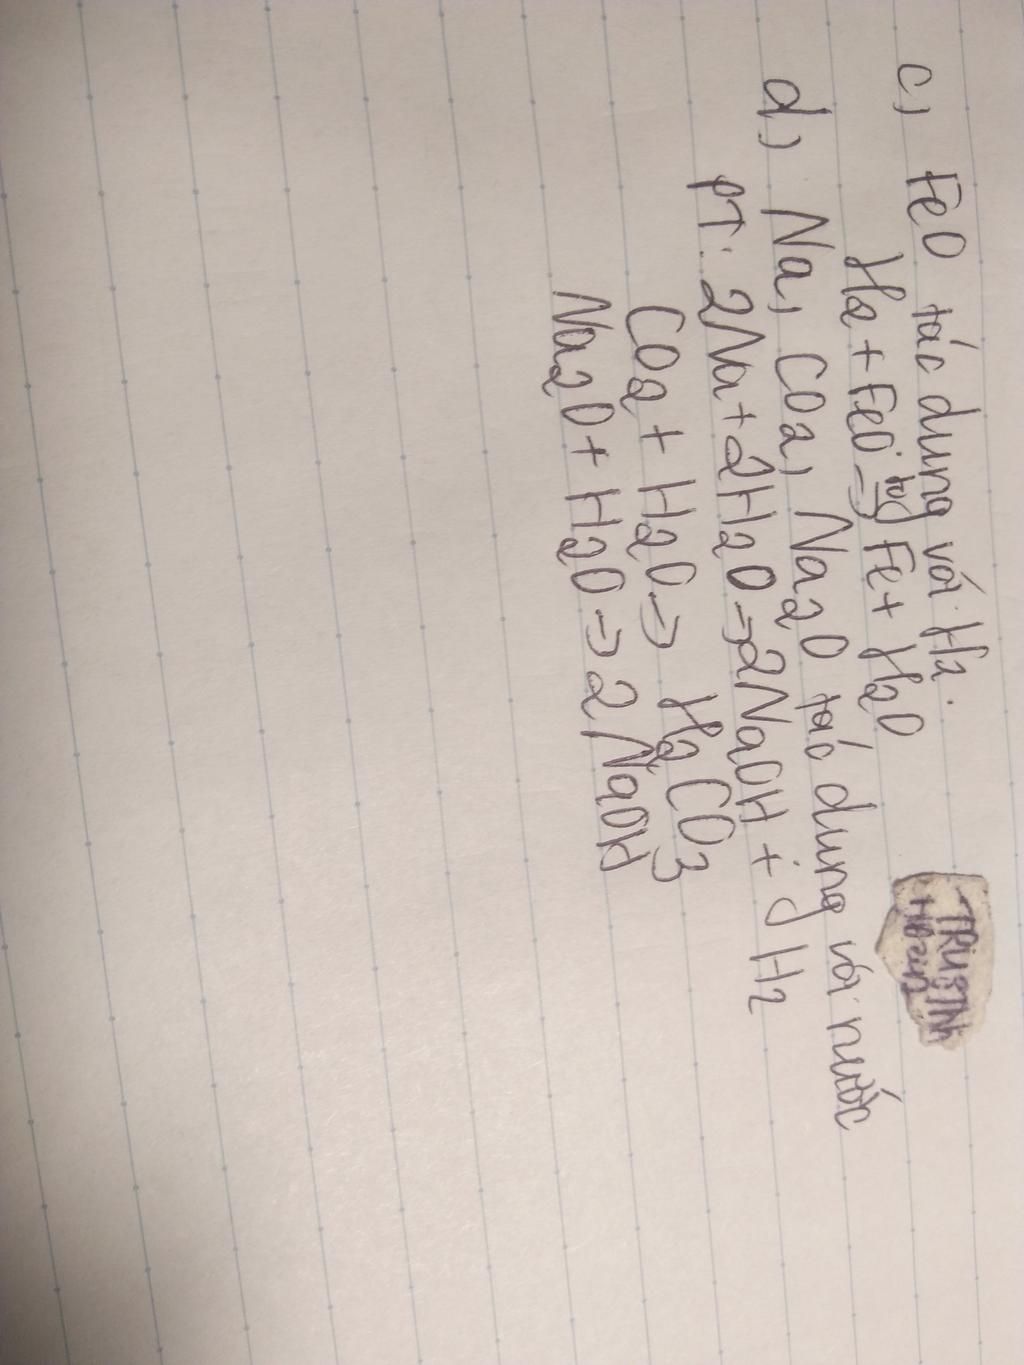 c, FeO tác dụng với H2.
H2 + FeO to→ Fe + H2O
d, Na, CO2, Na2O tác dụng với nước
PT: 2Na + 2H2O → 2NaOH + H2
CO2 + H2O → H2CO3
Na2O + H2O → 2NaOH